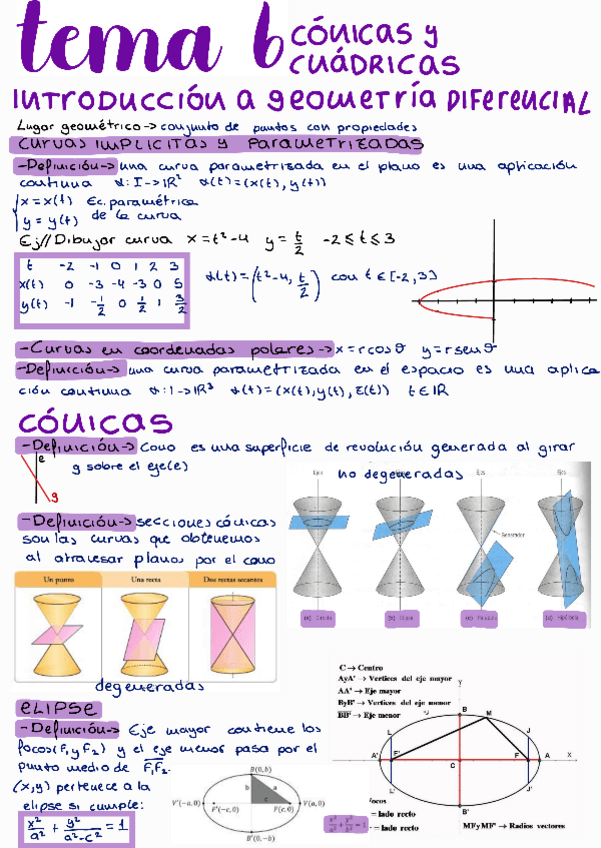 tema 6 CÓNICAS y
CUÁDRICAS
INTRODUCCIÓN a geometría DIFERENCIAL
Lugar geométrico -> conjunto de puntos con propiedades
CURVAS IMPLICITAS y PARAMETRIZADAS
-Definición-> una curva parametrizada en el plano es una aplicación
continua α: I -> IR² α(t) = (x(t), y(t))
{x = x(t) Ec. paramétrica
y = y(t) de la curva
Ej// Dibujar curva x = t² - 4 y = t/2 -2 ≤ t ≤ 3
t -2 -1 0 1 2 3
x(t) 0 -3 -4 -3 0 5
y(t) -1 -1/2 0 1/2 1 3/2
α(t) = (t² - 4, t/2) con t ∈ [-2, 3]
-Curvas en coordenadas polares-> x = r cos θ y = r sen θ
-Definición-> una curva parametrizada en el espacio es una aplica
ción continua α: I -> IR³ α(t) = (x(t), y(t), z(t)) t ∈ IR
CÓNICAS
-Definición-> Cono es una superficie de revolución generada al girar
g sobre el eje(e)
e
g
no degeneradas
Eje Eje Eje Eje
Generador
-Definición-> secciones cónicas
son las curvas que obtenemos
al atravesar planos por el cono
Un punto Una recta Dos rectas secantes
degeneradas
ELIPSE
-Definición-> Eje mayor contiene los
focos (F₁ y F₂) y el eje menor pasa por el
punto medio de F₁F₂.
(x,y) pertenece a la
elipse si cumple:
x²/a² + y²/a²-c² = 1
B(0, b)
b a
c
V'(-a, 0) F'(-c, 0) F(c, 0) V(a, 0)
B'(0, -b)
C → Centro
AyA' → Vertices del eje mayor
AA' → Eje mayor
ByB' → Vertices del eje menor
BB' → Eje menor
Y
B M
L J
A' F' C F A X
L' J'
B'
focos
= lado recto
x²/a² + y²/b² = 1 = lado recto
MFyMF' → Radios vectores